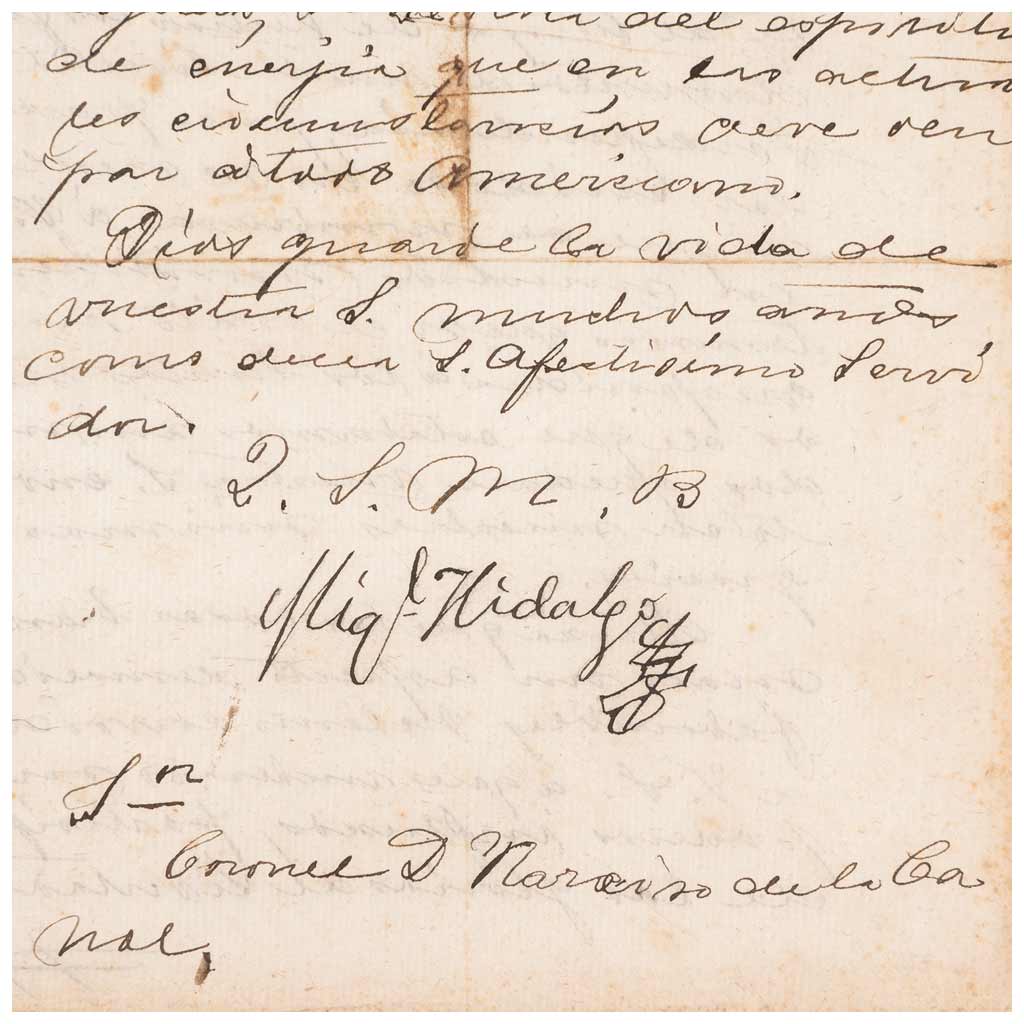 del espiritu
de énerjia que en las actua
les cicunstansias deve ven
por átodo Americano.
Dios guarde la vida de
vuestra S. muchos anos
como decea S. Afectisímo Servi
dor.
Q. S. M. B
Migl. Hidalgo
Sor
Coronel D Narciso de la Ca
nal,